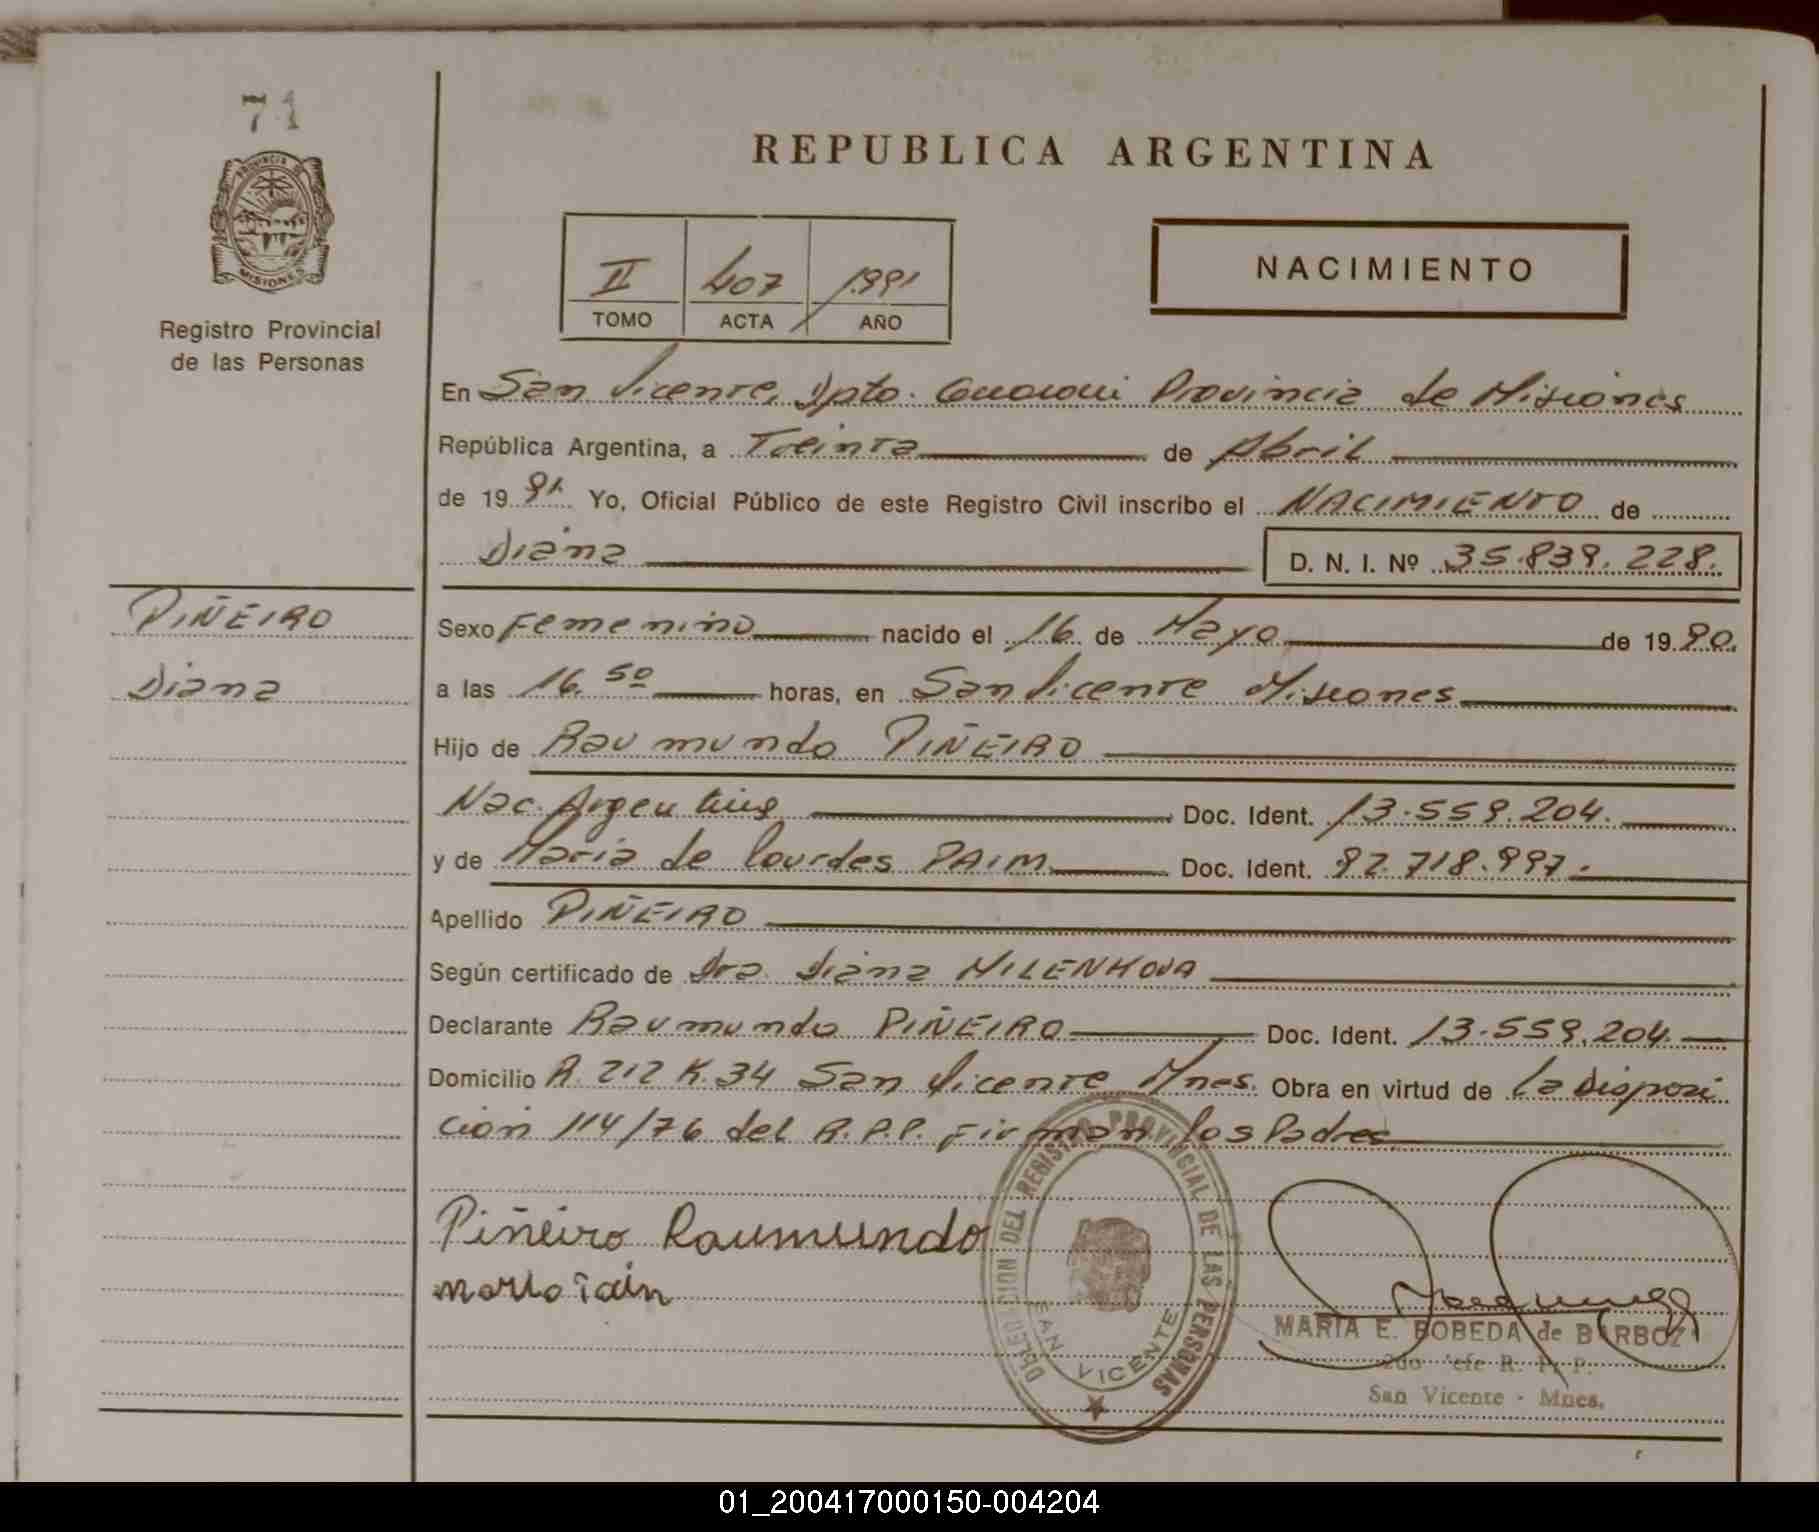 71
PROVINCIA DE
MISIONES
Registro Provincial
de las Personas
REPUBLICA ARGENTINA
II 407 1991
TOMO ACTA AÑO
NACIMIENTO
En San Vicente, Dpto. Guaraní Provincia de Misiones
República Argentina, a Treinta de Abril
de 1991. Yo, Oficial Público de este Registro Civil inscribo el NACIMIENTO de
Diana D. N. I. Nº 35.839.228.
PIÑEIRO
Diana
Sexo Femenino nacido el 16 de Mayo de 1990.
a las 16.50 horas, en San Vicente Misiones
Hijo de Raumundo PIÑEIRO
Nac. Argentina Doc. Ident. 13.559.204.
y de Maria de lourdes PAIM Doc. Ident. 92.718.997.
Apellido PIÑEIRO
Según certificado de Dra. Diana
Declarante Raumundo PIÑEIRO Doc. Ident. 13.559.204.
Domicilio R. 212 K.34 San Vicente Mnes. Obra en virtud de la Disposi
ción 114/76 del R.P.P. Firman los Padres
Piñeiro Raumundo
DEL REGISTRO PROVINCIAL DE LAS PERSONAS
SAN VICENTE
MARIA E. BOBEDA de BARBOZA
2do Jefe R. P. P.
San Vicente - Mnes.
01_200417000150-004204